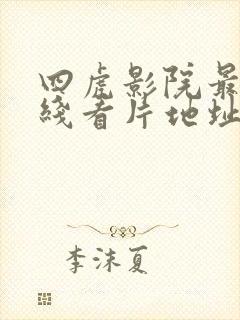 四虎影院最
线看片地址
李沫夏